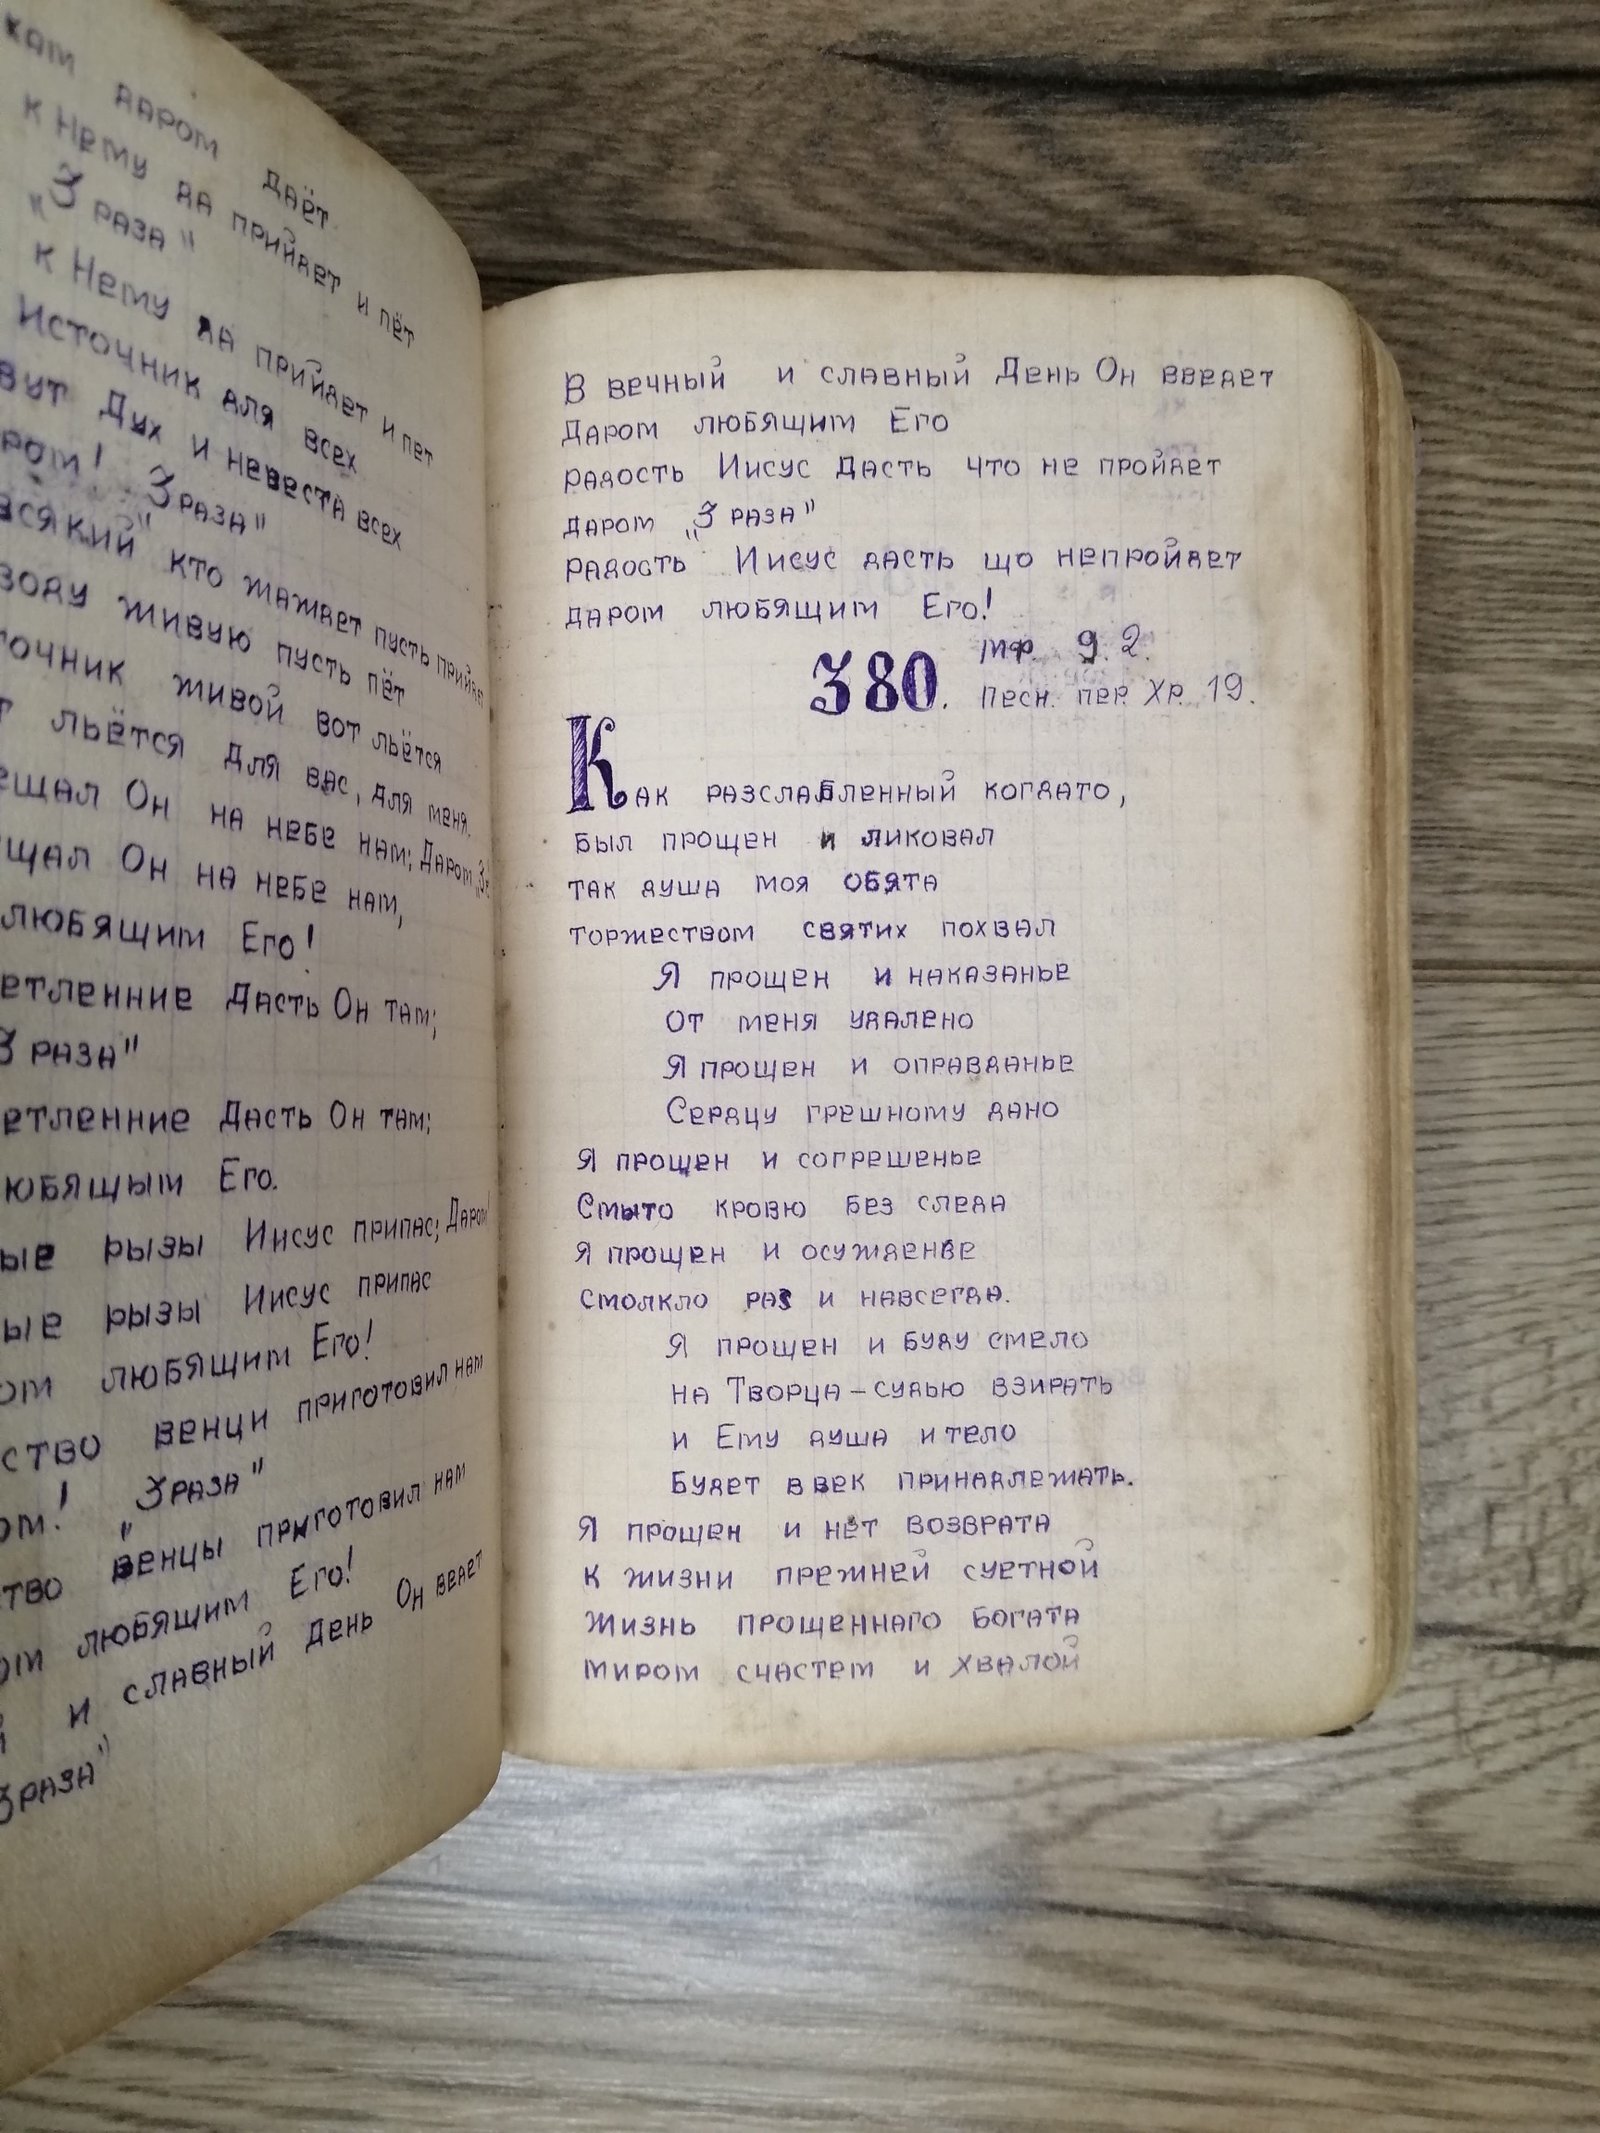 даром даёт
к Нему да прийдет и пёт
"3 раза"
к Нему да прийдет и пет
Источник для всех
Дух и невеста всех
3 раза"
кто жаждет пусть прийдет
воду живую пусть пёт
живой вот льётся
льётся для вас, для меня.
Он на небе нам; Даром
Он на небе нам,
любящим Его!
Дасть Он там;
3 раза"
Дасть Он там;
Его.
рызы Иисус припас; Даром
рызы Иисус припас
любящим Его!
венци приготовил нам
"3 раза"
венцы приготовил нам
любящим Его!
и славный день Он ведет
3 раза"
В вечный и славный День Он введет
Даром любящим Его
радость Иисус Дасть что не пройдет
даром "3 раза"
радость Иисус дасть що непройдет
даром любящим Его!
380. мф. 9. 2.
песн. пер. Хр. 19.
Как разслабленный когдато,
был прощен и ликовал
так душа моя обята
торжеством святих похвал
Я прощен и наказанье
От меня удалено
Я прощен и оправданье
Сердцу грешному дано
Я прощен и согрешенье
Смыто кровю без следа
Я прощен и осужденье
смолкло раз и навсегда.
Я прощен и буду смело
на Творца-судью взирать
и Ему душа и тело
Будет ввек принадлежать.
Я прощен и нет возврата
к жизни прежней суетной
жизнь прощеннаго богата
миром счастем и хвалой